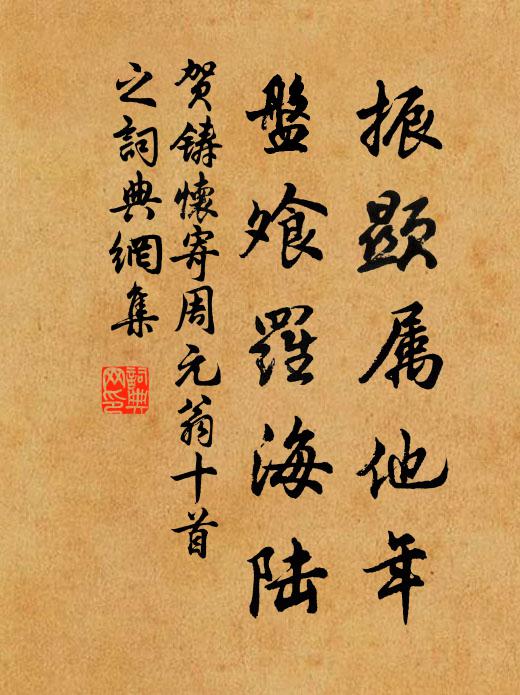 振顕属他年
盤飧羅海陆
贺鑄懷寄周元翁十首
之詞典網集
詞典網印